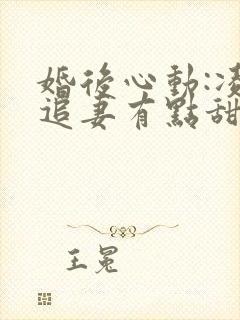 婚後心動:凌
追妻有點甜
王冕